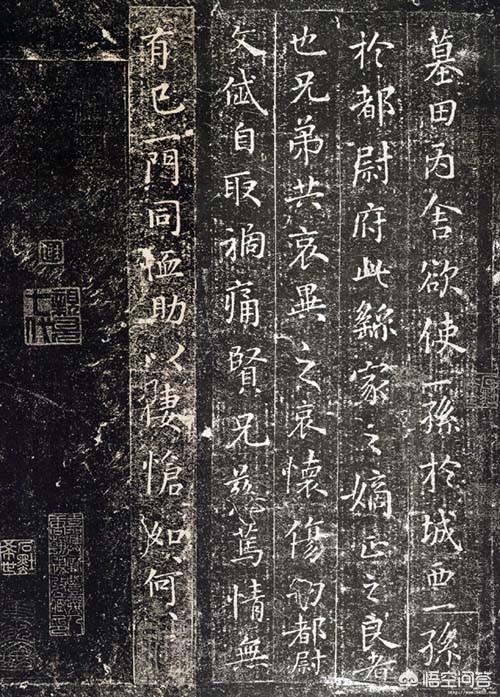 墓田丙舍欲使一孫於城西一孫
於都尉府此繇家之嫡正之良者
也兄弟共哀異之哀懷傷切都尉
文岱自取禍痛賢兄慈篤情無
有已一門同恤助以悽愴如何〻
悟空问答